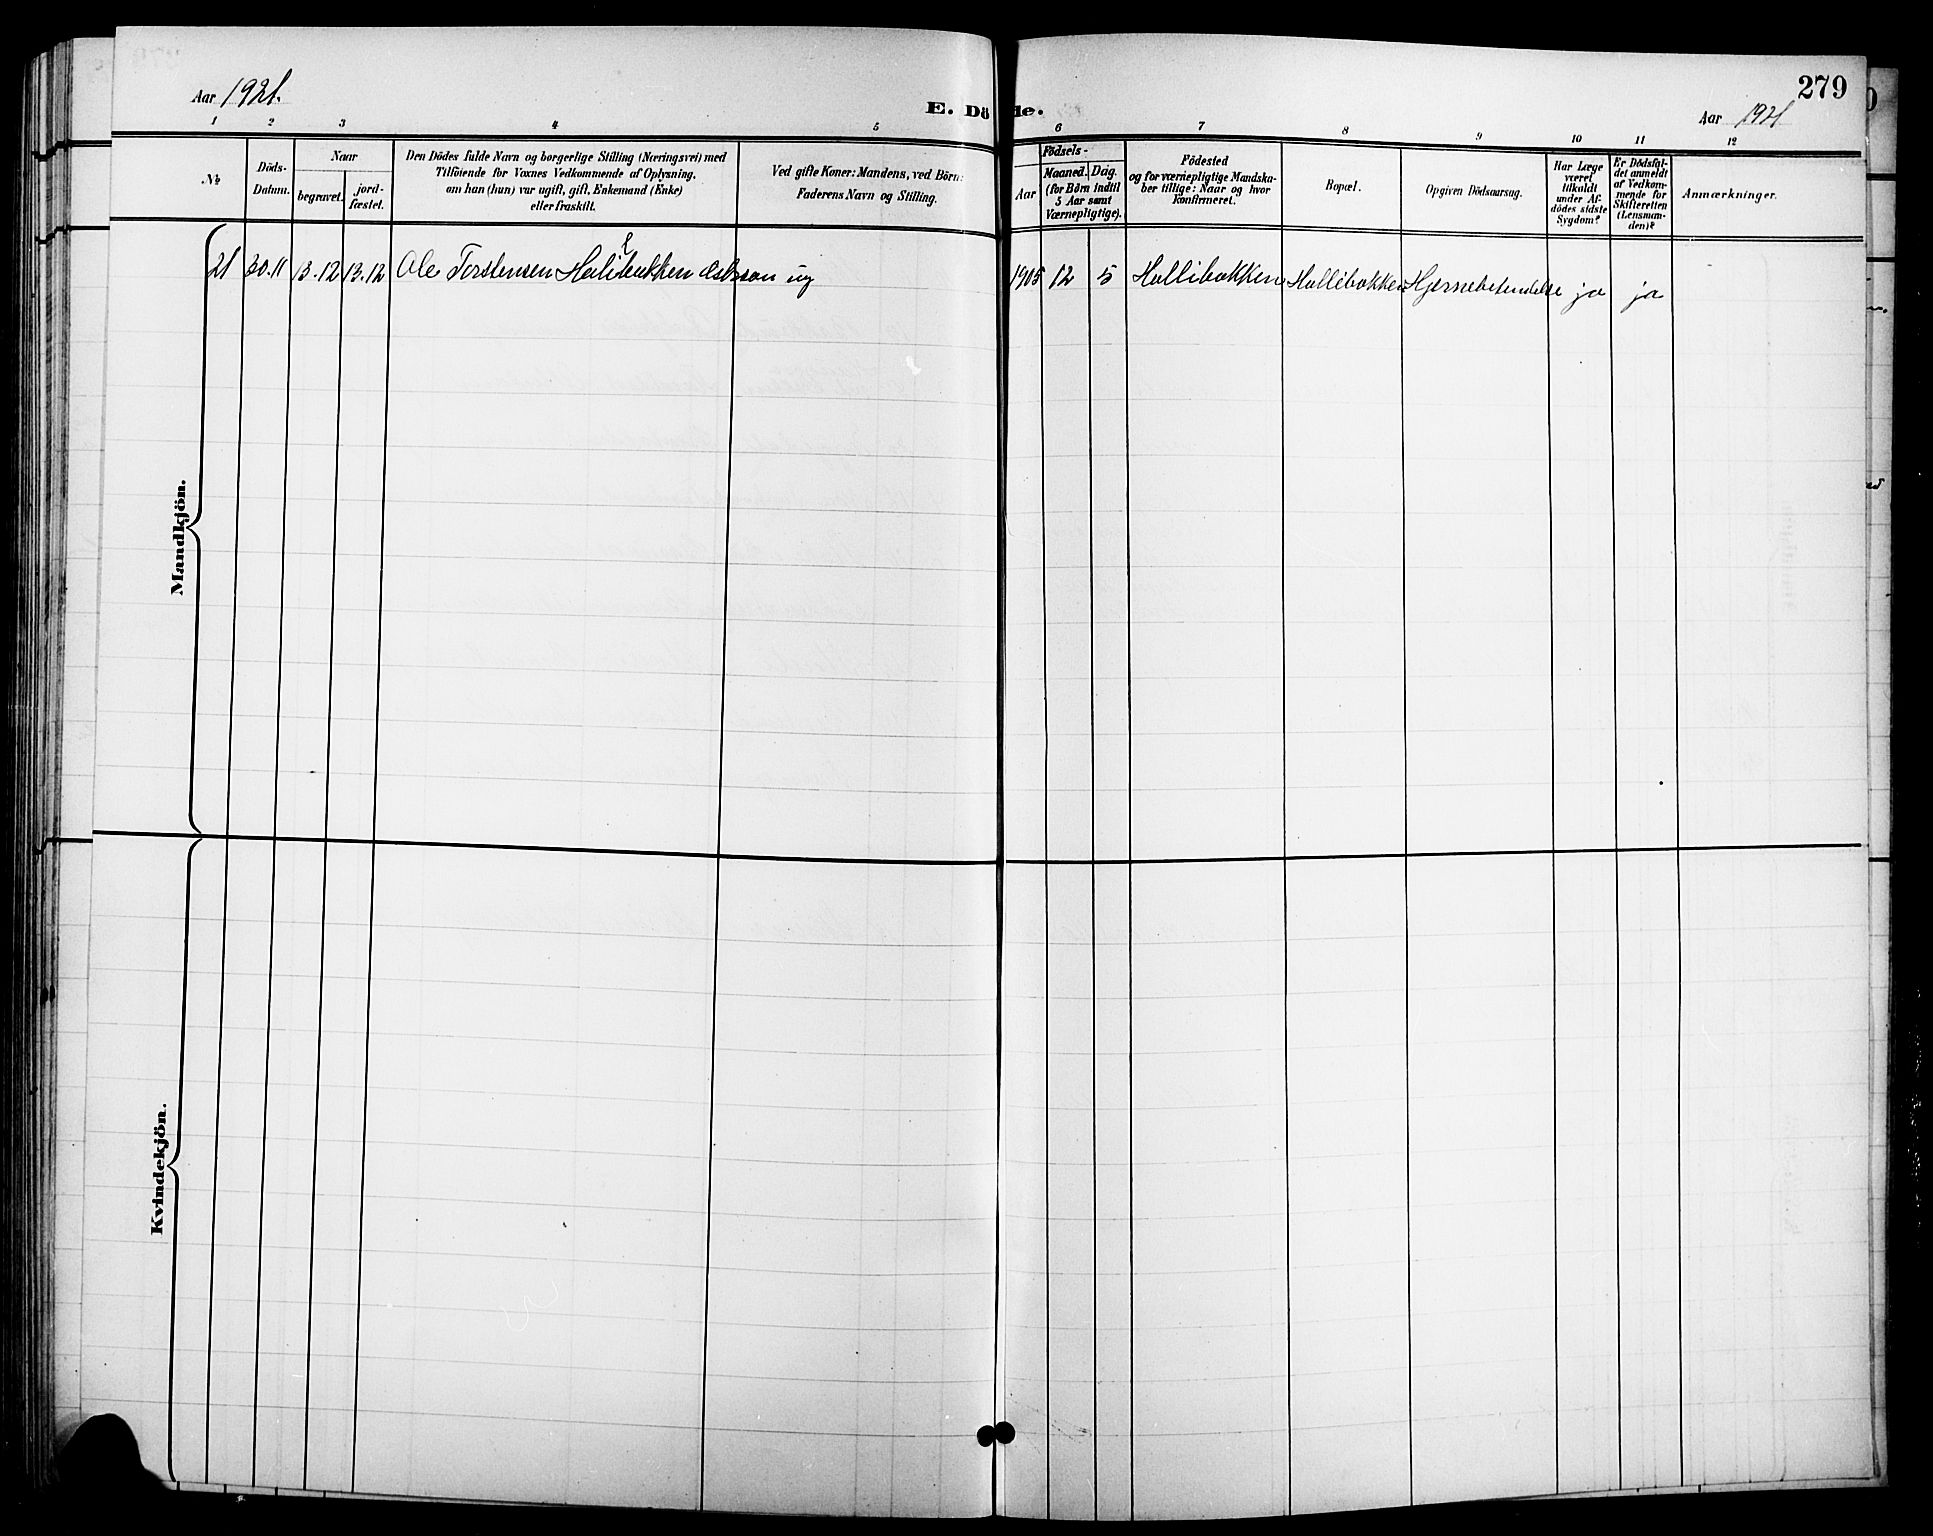 Aar 1921.
E. Döde.
279
Aar 1921
1 2 3 4 5 6 7 8 9 10 11 12
№
Döds-
Datum.
Naar
begravet.
jord-
fæstet.
Den Dödes fulde Navn og borgerlige Stilling (Næringsvei) med
Tilföiende for Voxnes Vedkommende af Oplysning,
om han (hun) var ugift, gift, Enkemand (Enke)
eller fraskilt.
Ved gifte Koner: Mandens, ved Börn:
Faderens Navn og Stilling.
Födsels-
Aar
Maaned. Dag.
(for Börn indtil
5 Aar samt
Værnepligtige).
Födested
og for værnepligtige Mandska-
ber tillige: Naar og hvor
Konfirmeret.
Bopæl.
Opgiven Dödsaarsag.
Har Læge
været
tilkaldt
under Af-
dödes sidste
Sygdom?
Er Dödsfal-
det anmeldt
af Vedkom-
mende for
Skifteretten
(Lensman-
den)?
Anmærkninger.
Mandkjön.
21 30.11 13.12 13.12 Ole Torstensen Hallibakken ug 1905 12 5 Hallibakken Hallibakken Hjernebetendelse ja ja
Kvindekjön.